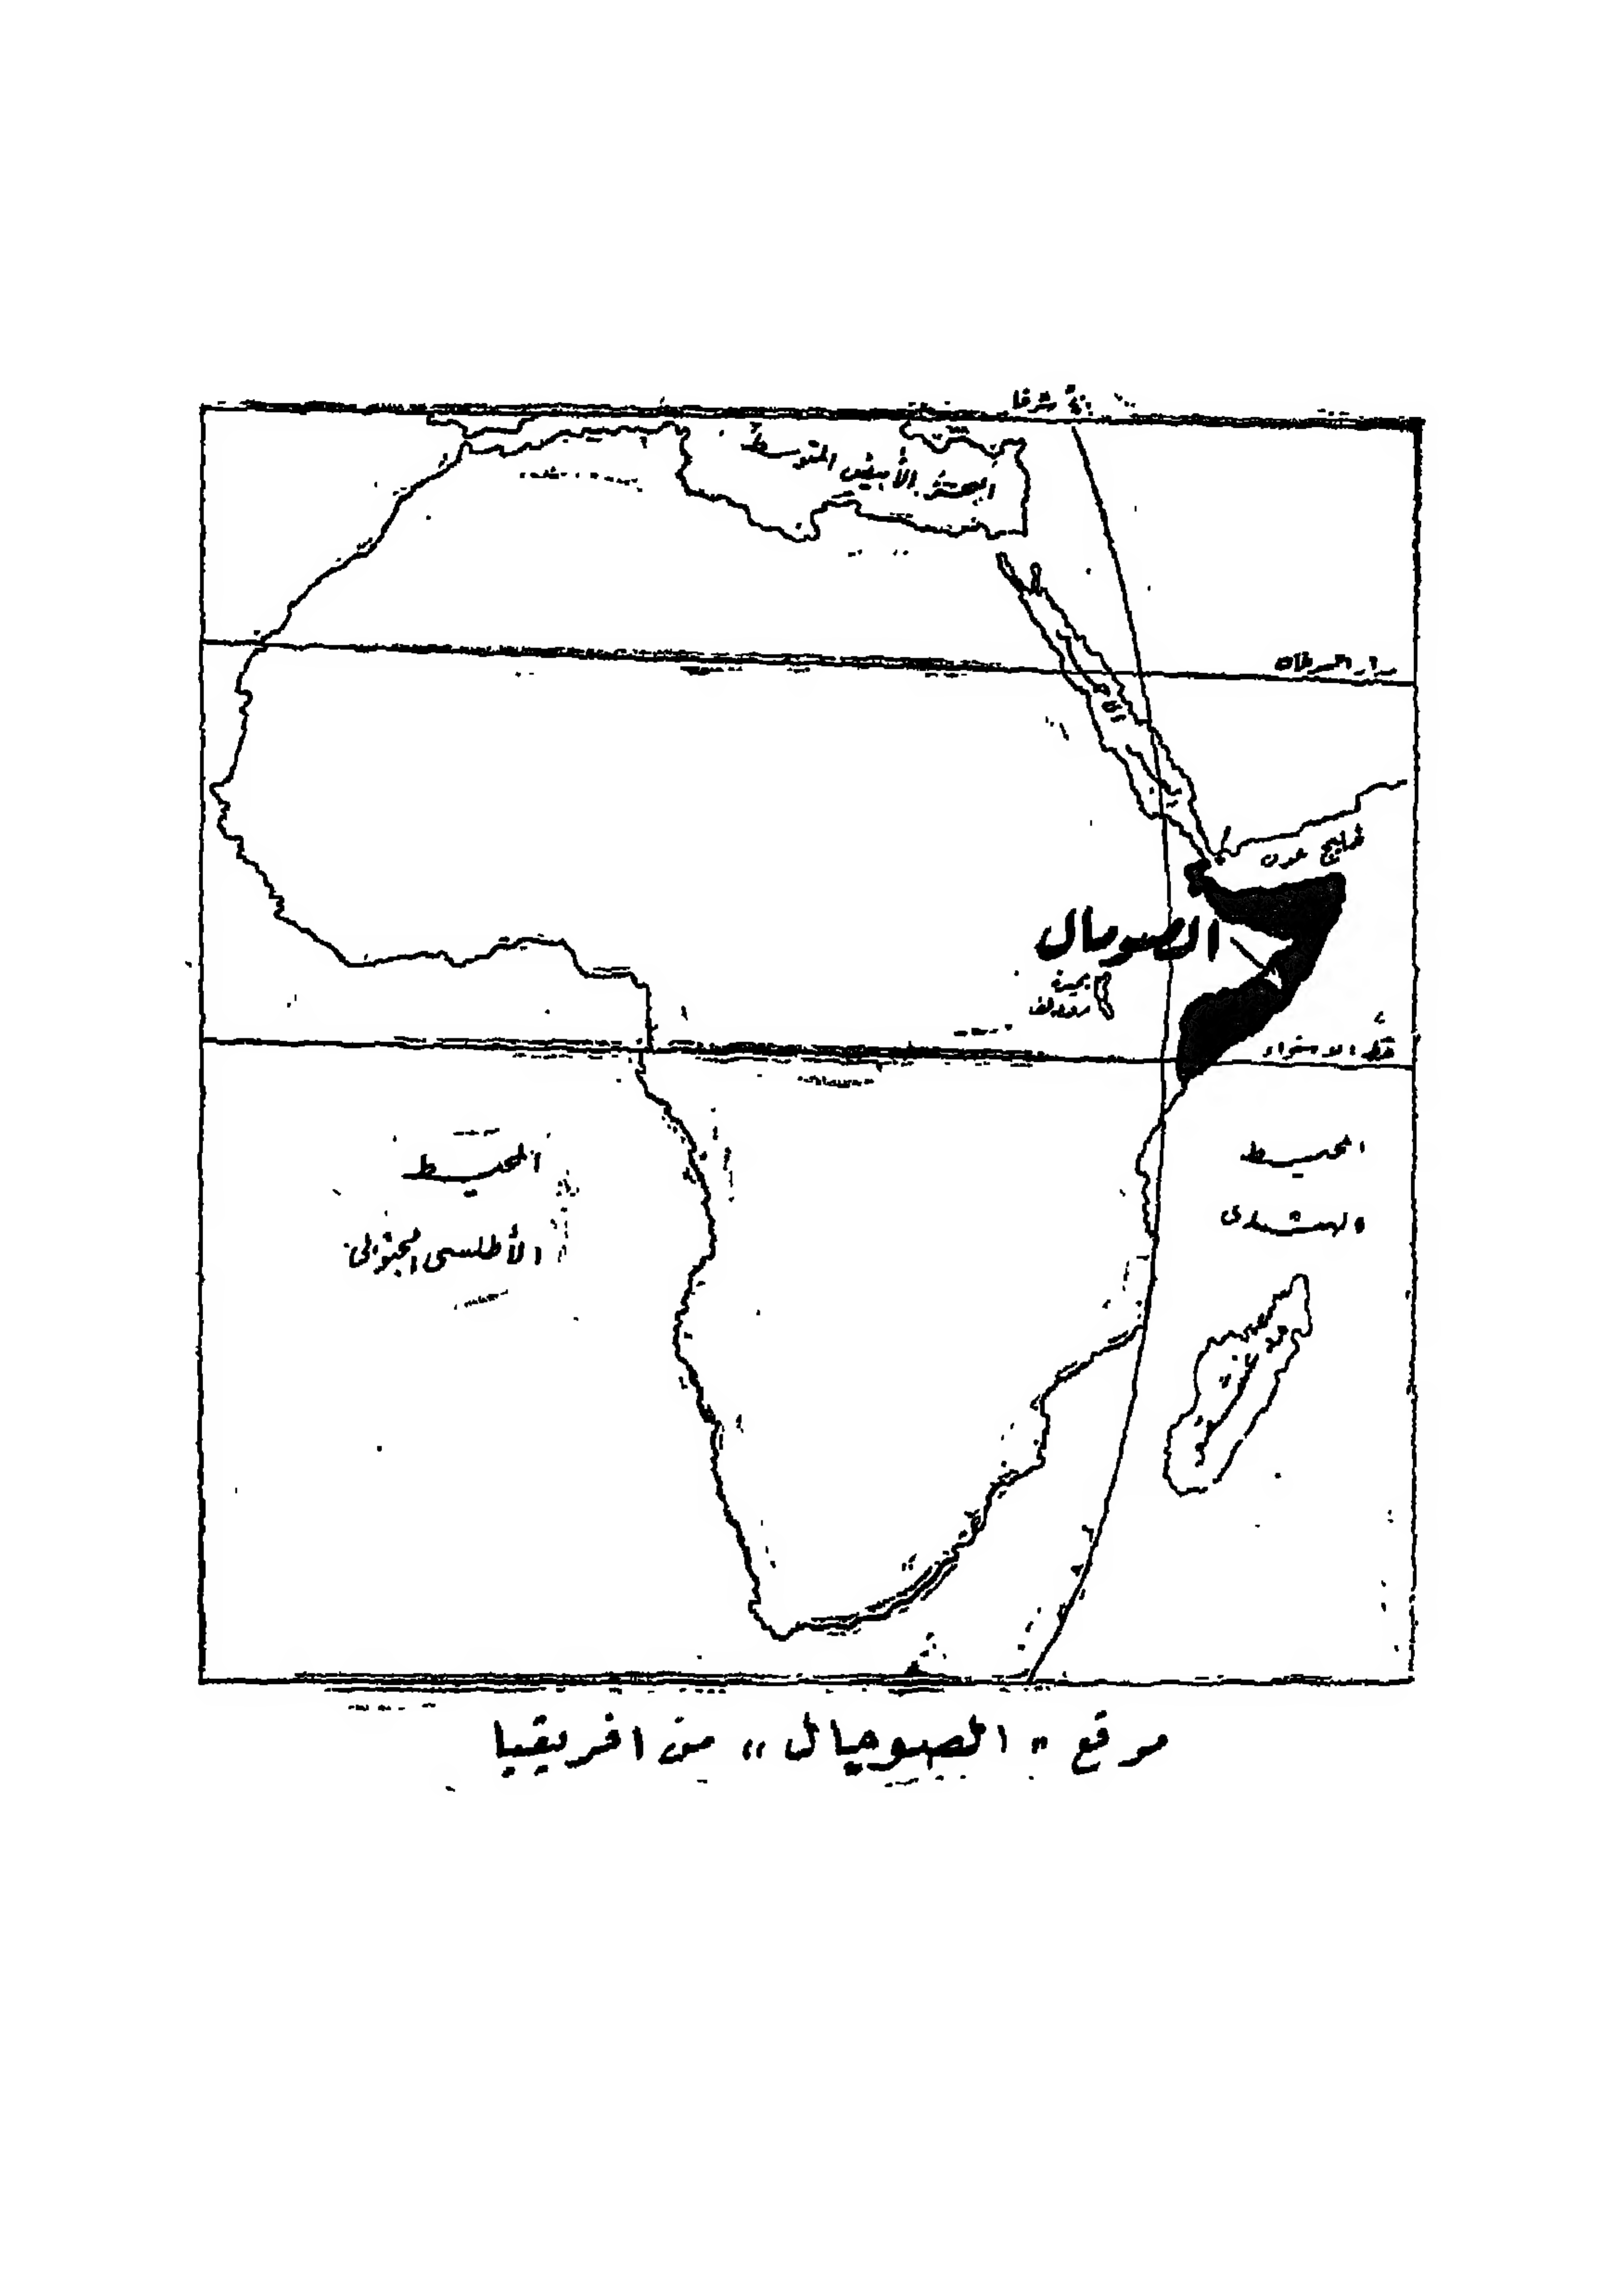 شرقا
البحر الأبيض المتوسط
مدار السرطان
خليج عدن
الصومال
بحيرة
رودولف
خط الاستواء
المحيط
الأطلسى الجنوبى
المحيط
الهندى
موقع "الصومال" من افريقيا